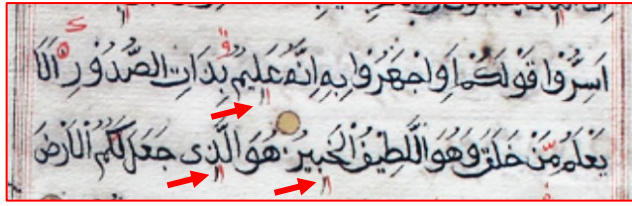 اَسِرُّوا قَوْلَكُمْ اَوِاجْهَرُوا بِهِ اِنَّهُ عَلِيمٌ بِذَاتِ الصُّدُورِ اَلَا
يَعْلَمُ مَنْ خَلَقَ وَهُوَ اللَّطِيفُ الْخَبِيرُ هُوَ الَّذِى جَعَلَ لَكُمُ الْاَرْضَ